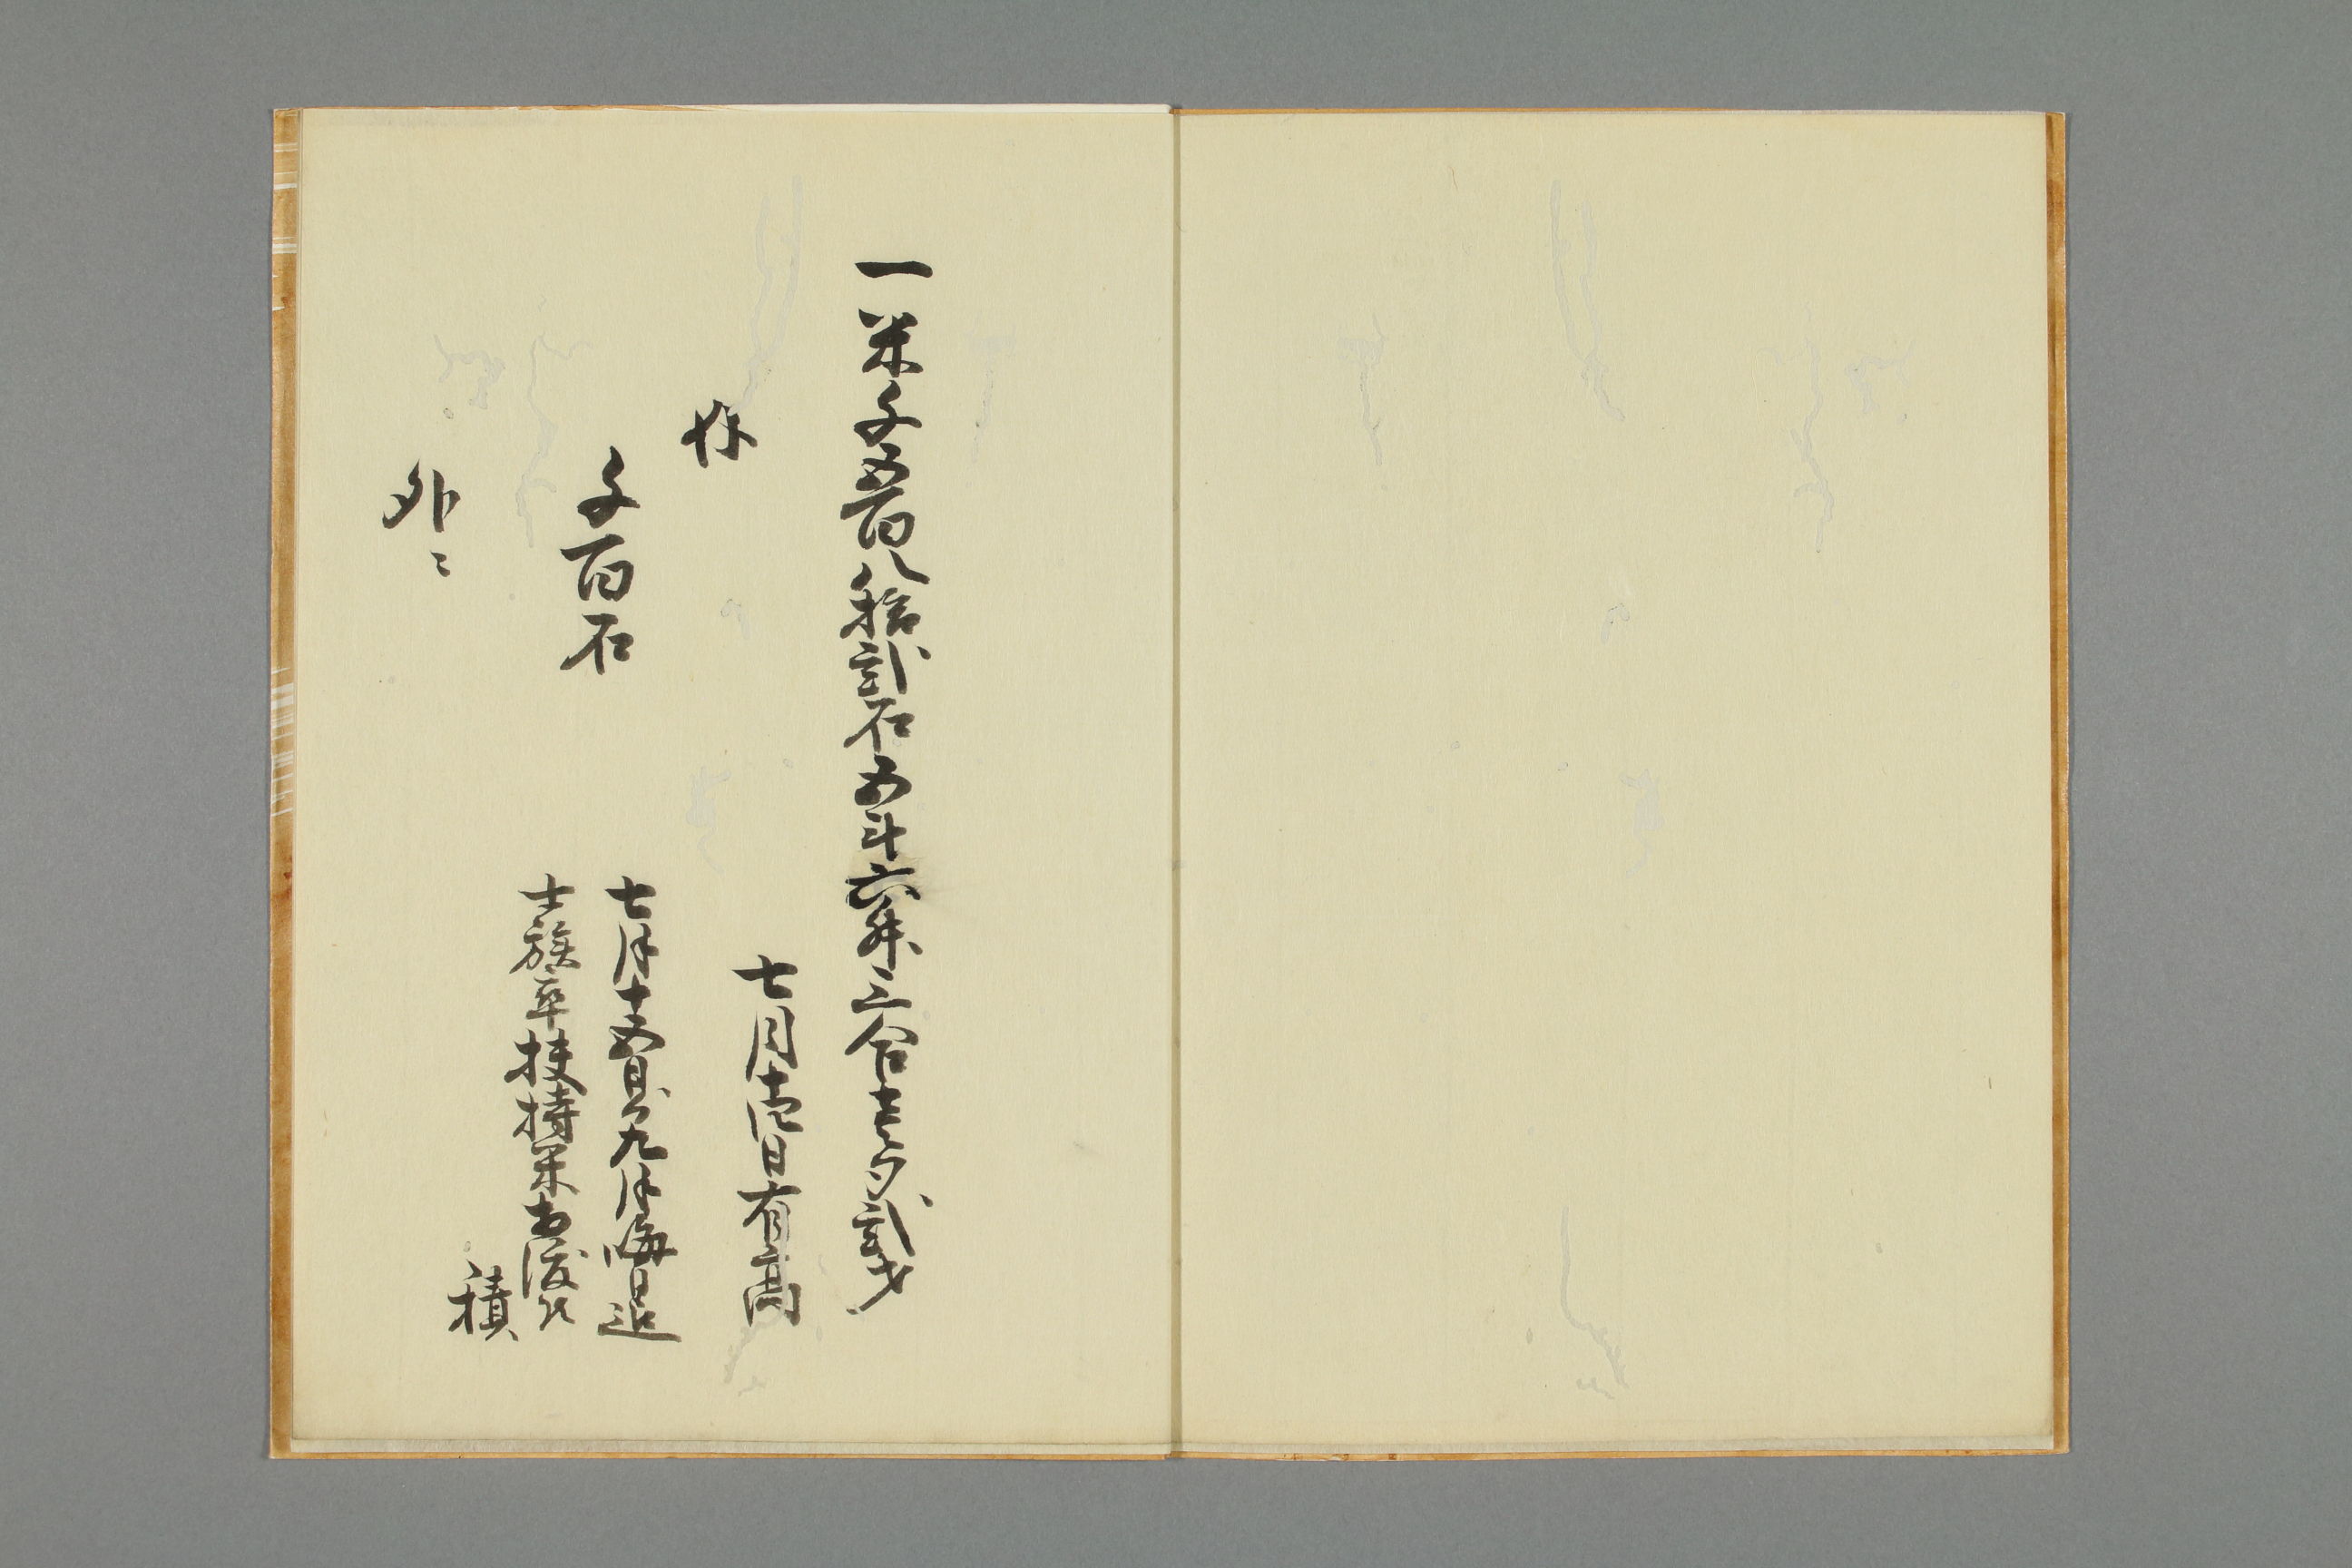 一米千五百八拾弐石五斗六舛三合壱夕弐才
七月十四日有高
内
千百石
七月十五日ゟ九月晦日迄
士族卒扶持米相渡候
積
外ニ